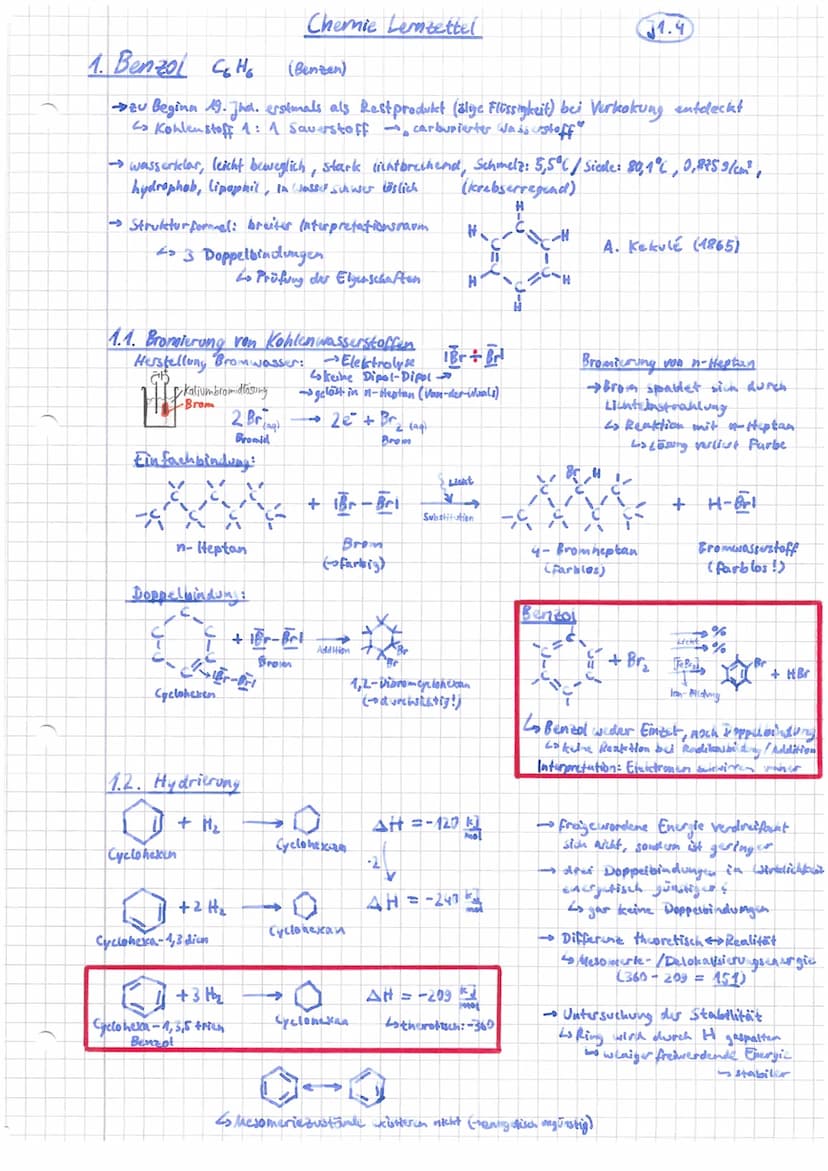 Chemie Lernzettel
J1.4
1. Benzol C₆H₆ (Benzen)
→ zu Beginn 19. Jhd. erstmals als Restprodukt (ölige Flüssigkeit) bei Verkokung entdeckt
↳ Kohlenstoff 1 : 1 Sauerstoff → „carburierter Wasserstoff"
→ wasserklar, leicht beweglich, stark lichtbrechend, Schmelz: 5,5°C / Siede: 80,1°C, 0,875 g/cm³,
hydrophob, lipophil, in Wasser schwer löslich (krebserregend)
→ Strukturformel: breiter Interpretationsraum
↳ 3 Doppelbindungen
↳ Prüfung der Eigenschaften
A. Kekulé (1865)
1.1. Bromierung von Kohlenwasserstoffen
Herstellung Bromwasser: → Elektrolyse
↳ keine Dipol-Dipol
→ gelöst in n-Heptan (Van-der-Waals)
Kaliumbromidlösung
Brom
2 Br⁻(aq) → 2e⁻ + Br₂ (aq)
Bromid Brom
Bromierung von n-Heptan
→ Brom spaldet sich durch
Lichteinstrahlung
↳ Reaktion mit n-Heptan
↳ Lösung verliert Farbe
Einfachbindung:
+ |Br – Br| Licht Substitution + H-Br|
n-Heptan Brom 4-Bromheptan Bromwasserstoff
(→ farbig) (farblos) (farblos!)
Doppelbindung:
+ |Br–Br| Addition Br Br
Cyclohexen Brom 1,2-Dibromcyclohexan
(→ durchsichtig!)
Benzol
+ Br₂ Licht [FeBr₃] Ion-Bildung Br + HBr
↳ Benzol weder Einzel-, noch Doppelbindung
↳ keine Reaktion bei Radikalbildung / Addition
Interpretation: Elektronen schwirren umher
1.2. Hydrierung
+ H₂ → ΔH = -120 kJ/mol
Cyclohexen Cyclohexan
·2
+ 2 H₂ → ΔH = -240 kJ/mol
Cyclohexa-1,3dien Cyclohexan
+ 3 H₂ → ΔH = -209 kJ/mol
Cyclohexa-1,3,5 trien Cyclohexan ↳ therotisch: -360
Benzol
→ freigewordene Energie verdreifacht
sich nicht, sondern ist geringer
→ drei Doppelbindungen in Wirklichkeit
energetisch günstiger?
↳ gar keine Doppelbindungen
→ Differenz theoretisch ↔ Realität
↳ Mesomerie-/Delokalisierungsenergie
(360 - 209 = 151)
→ Untersuchung der Stabilität
↳ Ring wird durch H gespalten
↳ weniger freiwerdende Energie
↳ stabiler
↳ Mesomeriezustände existieren nicht (→ energetisch ungünstig)